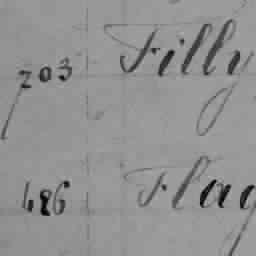 203 Filly
486 Flag